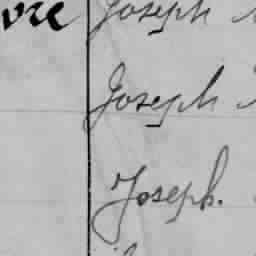 vre Joseph
Joseph
Joseph.